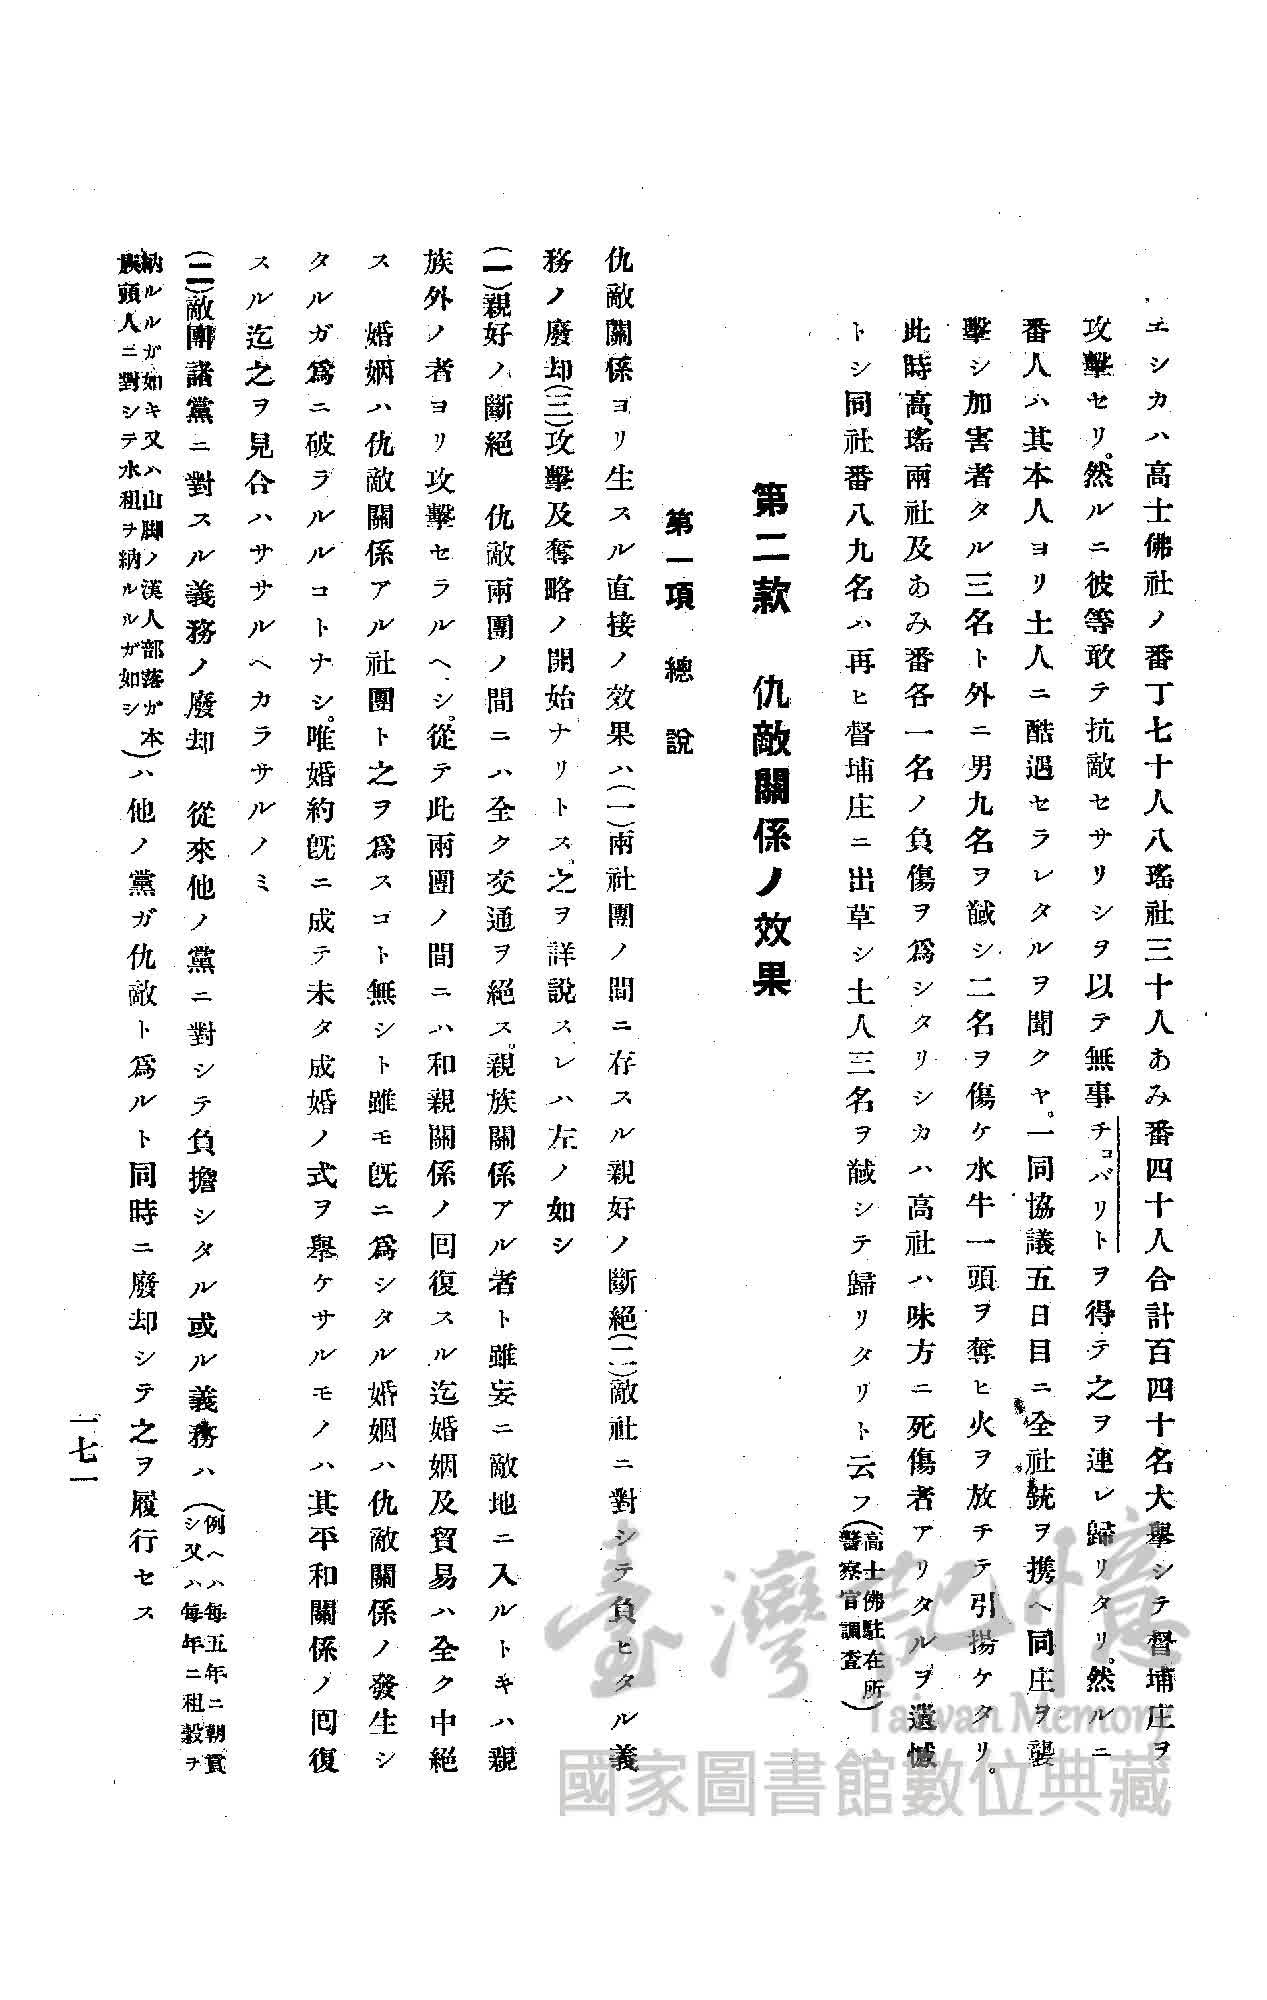 エシカハ高士佛社ノ番丁七十人八瑤社三十人あみ番四十人合計百四十名大擧シテ督埔庄ヲ
攻擊セリ。然ルニ彼等敢テ抗敵セサリシヲ以テ無事チョバリトヲ得テ之ヲ連レ歸リタリ。然ルニ
番人ハ其本人ヨリ土人ニ酷遇セラレタルヲ聞クヤ。一同協議五日目ニ全社銃ヲ携ヘ同庄ヲ襲
擊シ加害者タル三名ト外ニ男九名ヲ馘シ二名ヲ傷ケ水牛一頭ヲ奪ヒ火ヲ放チテ引揚ケタリ。
此時高、瑤兩社及あみ番各一名ノ負傷ヲ爲シタリシカハ高社ハ味方ニ死傷者アリタルヲ遺憾
トシ同社番八九名ハ再ヒ督埔庄ニ出草シ土人三名ヲ馘シテ歸リタリト云フ(高士佛駐在所警察官調査)
第二款 仇敵關係ノ效果
第一項 總說
仇敵關係ヨリ生スル直接ノ效果ハ(一)兩社團ノ間ニ存スル親好ノ斷絕(二)敵社ニ對シテ負ヒタル義
務ノ廢却(三)攻擊及奪略ノ開始ナリトス。之ヲ詳說スレハ左ノ如シ
(一)親好ノ斷絕 仇敵兩團ノ間ニハ全ク交通ヲ絕ス。親族關係アル者ト雖妄ニ敵地ニ入ルトキハ親
族外ノ者ヨリ攻擊セラルヘシ。從テ此兩團ノ間ニハ和親關係ノ囘復スル迄婚姻及貿易ハ全ク中絕
ス 婚姻ハ仇敵關係アル社團ト之ヲ爲スコト無シト雖モ旣ニ爲シタル婚姻ハ仇敵關係ノ發生シ
タルガ爲ニ破ラルルコトナシ。唯婚約旣ニ成テ未タ成婚ノ式ヲ舉ケサルモノハ其平和關係ノ囘復
スル迄之ヲ見合ハササルヘカラサルノミ
(二)敵團諸黨ニ對スル義務ノ廢却 從來他ノ黨ニ對シテ負擔シタル或ル義務ハ(例ヘハ每五年ニ朝貢シ又ハ每年ニ租穀ヲ
納ルルガ如キ又ハ山脚ノ漢人部落ガ本族頭人ニ對シテ水租ヲ納ルルガ如シ)ハ他ノ黨ガ仇敵ト爲ルト同時ニ廢却シテ之ヲ履行セス
一七一
臺灣記憶
Taiwan Memory
國家圖書館數位典藏